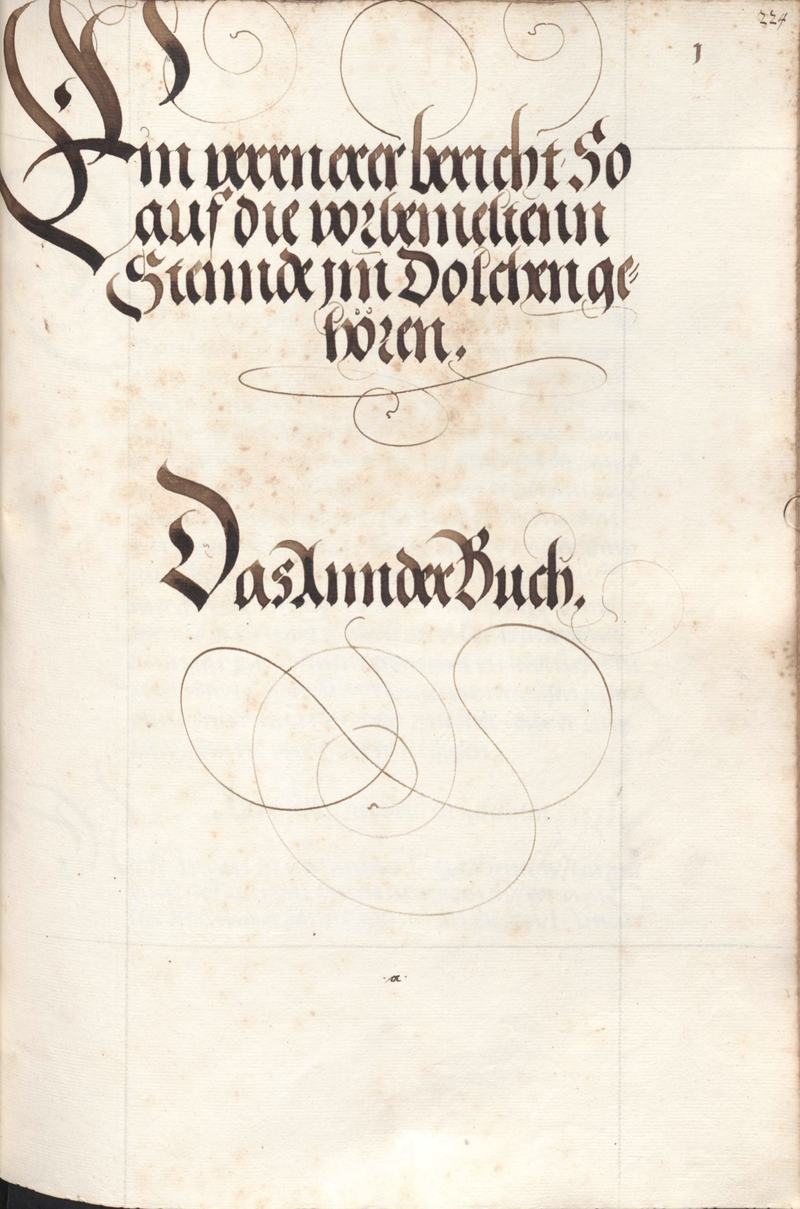 224
1
Ein vererrnerer bericht. So
auf die vorbemeltenn
Stennde jm̄ Dolchen ge⸗
hören.
Das Annder Buch.
·a·